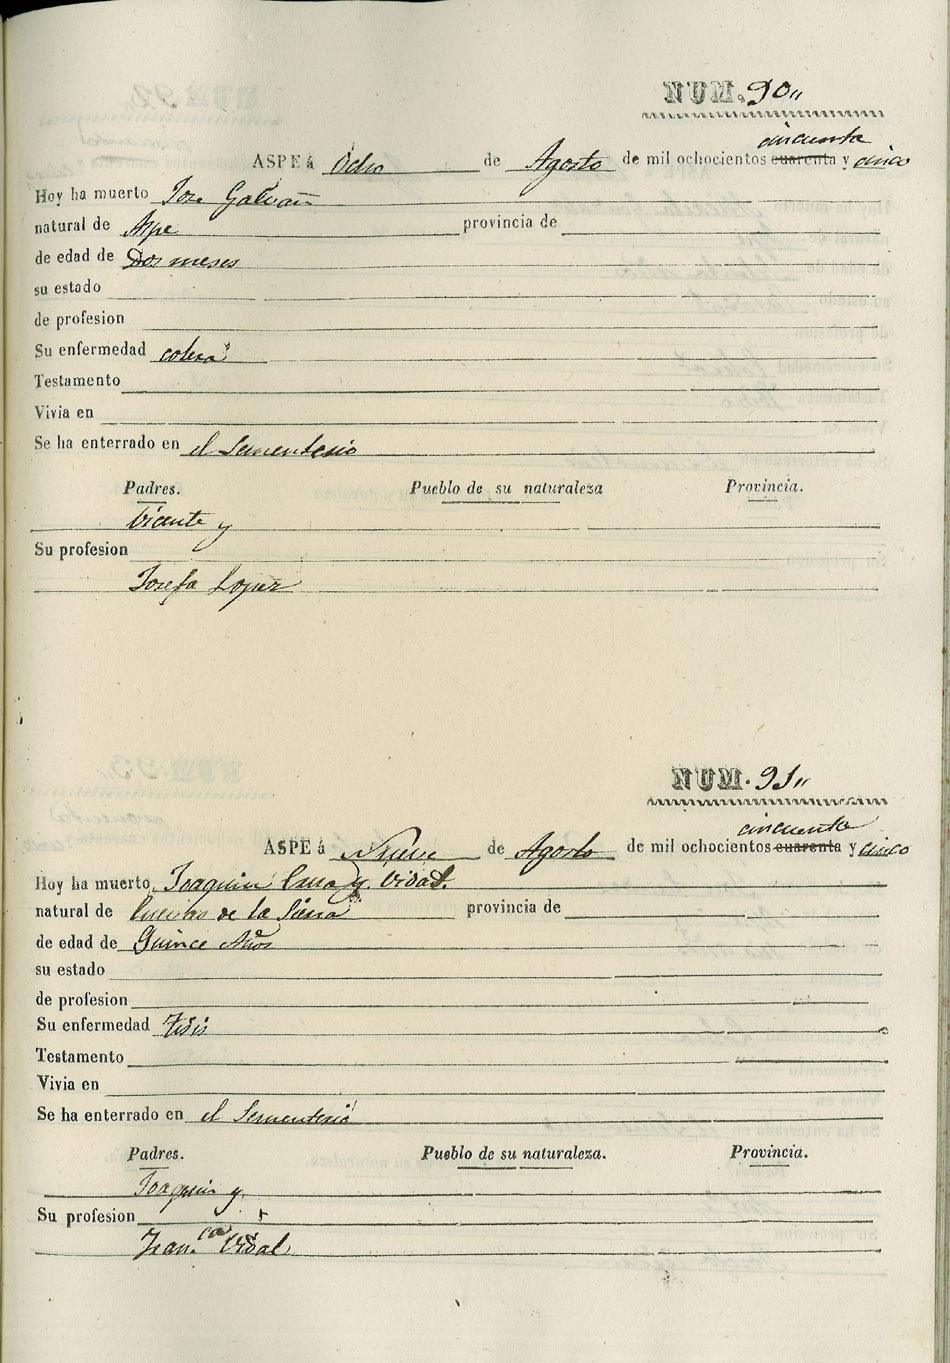 NUM. 90„
cincuenta
ASPE á Ocho de Agosto de mil ochocientos cuarenta y cinco
Hoy ha muerto Jose Galvañ
natural de Aspe provincia de
de edad de Dos meses
su estado
de profesion
Su enfermedad colera
Testamento
Vivia en
Se ha enterrado en el Sementerio
Padres. Pueblo de su naturaleza Provincia.
Vicente y
Su profesion
Josefa Lopez
NUM. 91„
cincuenta
ASPE á Nueve de Agosto de mil ochocientos cuarenta y cinco
Hoy ha muerto Joaquin y Vidal.
natural de Cuevas de la provincia de
de edad de Quince Años
su estado
de profesion
Su enfermedad Tisis
Testamento
Vivia en
Se ha enterrado en el Sementerio
Padres. Pueblo de su naturaleza. Provincia.
Joaquin y
Su profesion
Fran.ca Vidal